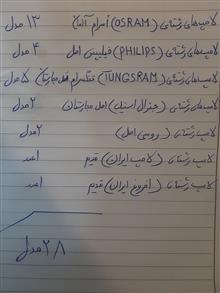 لامپ‌های رشته‌ای (OSRAM) اُسرام آلمان ۱۳ مدل
لامپ‌های رشته‌ای (PHILIPS) فیلیپس اصل ۴ مدل
لامپ‌های رشته‌ای (TUNGSRAM) تنگسرام اصل مجارستان ۵ مدل
لامپ‌های رشته‌ای (جنرال استیل) اصل مجارستان ۲ مدل
لامپ رشته‌ای (روسی اصل) ۲ مدل
لامپ رشته‌ای (لامپ ایران) قدیم ۱ عدد
لامپ رشته‌ای (افروغ ایران) قدیم ۱ عدد
۲۸ مدل